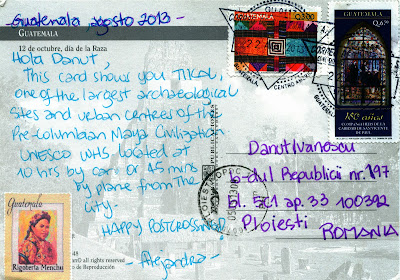 Guatemala, agosto 2013-
GUATEMALA
12 de octubre, día de la Raza
Hola Danut,
This card shows you TIKAL,
one of the largest archaeological
sites and urban centres of the
Pre-Columbian Maya Civilization
UNESCO WHS. located at
10 hrs by car or 45 mins
by plane from the
city-
HAPPY POSTCROSSING!
- Alejandra -
Guatemala
Rigoberta Menchú
all rights reserved
de Reproducción
GUATEMALA
Guatemala
180 años
Danut Ivanoscu
b-dul Republicii nr. 197
bl. 5C1 ap. 33 100392
Ploiesti
ROMANIA